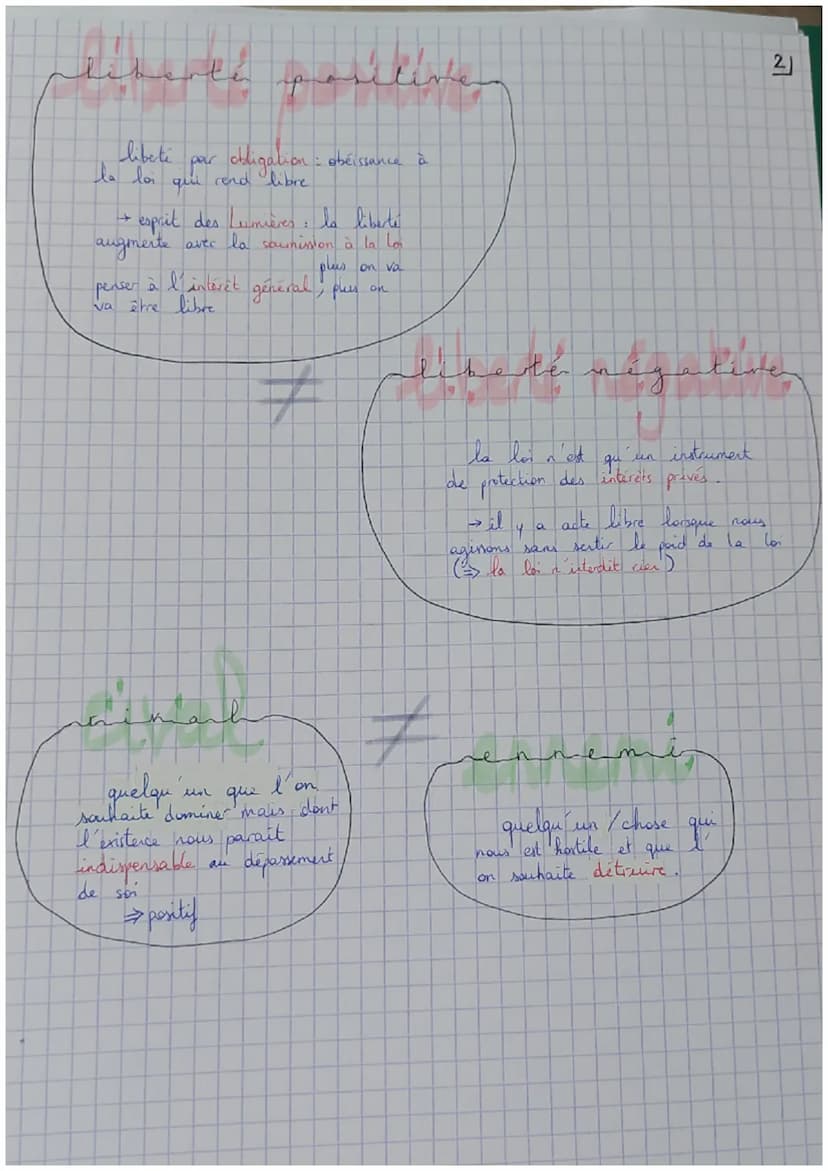 2]
liberté positive
libeté par obligation : obéissance à
la loi qui rend libre
→ esprit des Lumières : la liberté
augmente avec la soumission à la Loi
plus on va
penser à l'intérêt général, plus on
va être libre
≠
liberté négative
la loi n'est qu'un instrument
de protection des intérêts privés.
→ il y a acte libre lorsque nous
aginons sans sentir le poid de la loi
(⇒ la loi n'interdit rien)
rival
≠
ennemi
quelqu'un que l'on
souhaite dominer mais dont
l'existence nous parait
indispensable au dépassement
de soi
⇒ positif
quelqu'un / chose qui
nous est hostile et que l'
on souhaite détruire.